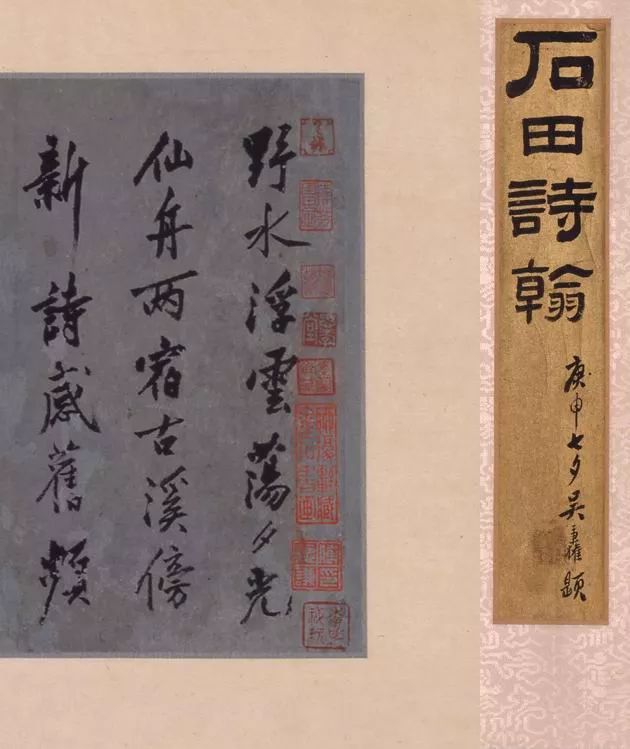 石田詩翰
庚申七夕吳東權題
野水浮雲蕩夕光
仙舟两宿古溪傍
新詩感舊頻